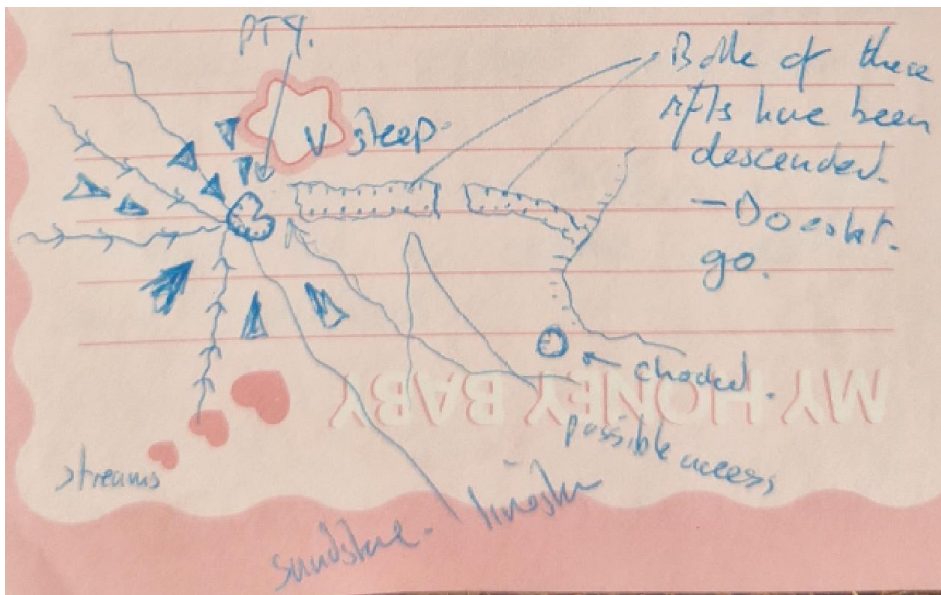 PTY.
V steep.
Bothe of these
rifts have been
descended.
- Doesnt.
go.
choked.
possible access
streams
sandstone - 
MY HONEY BABY